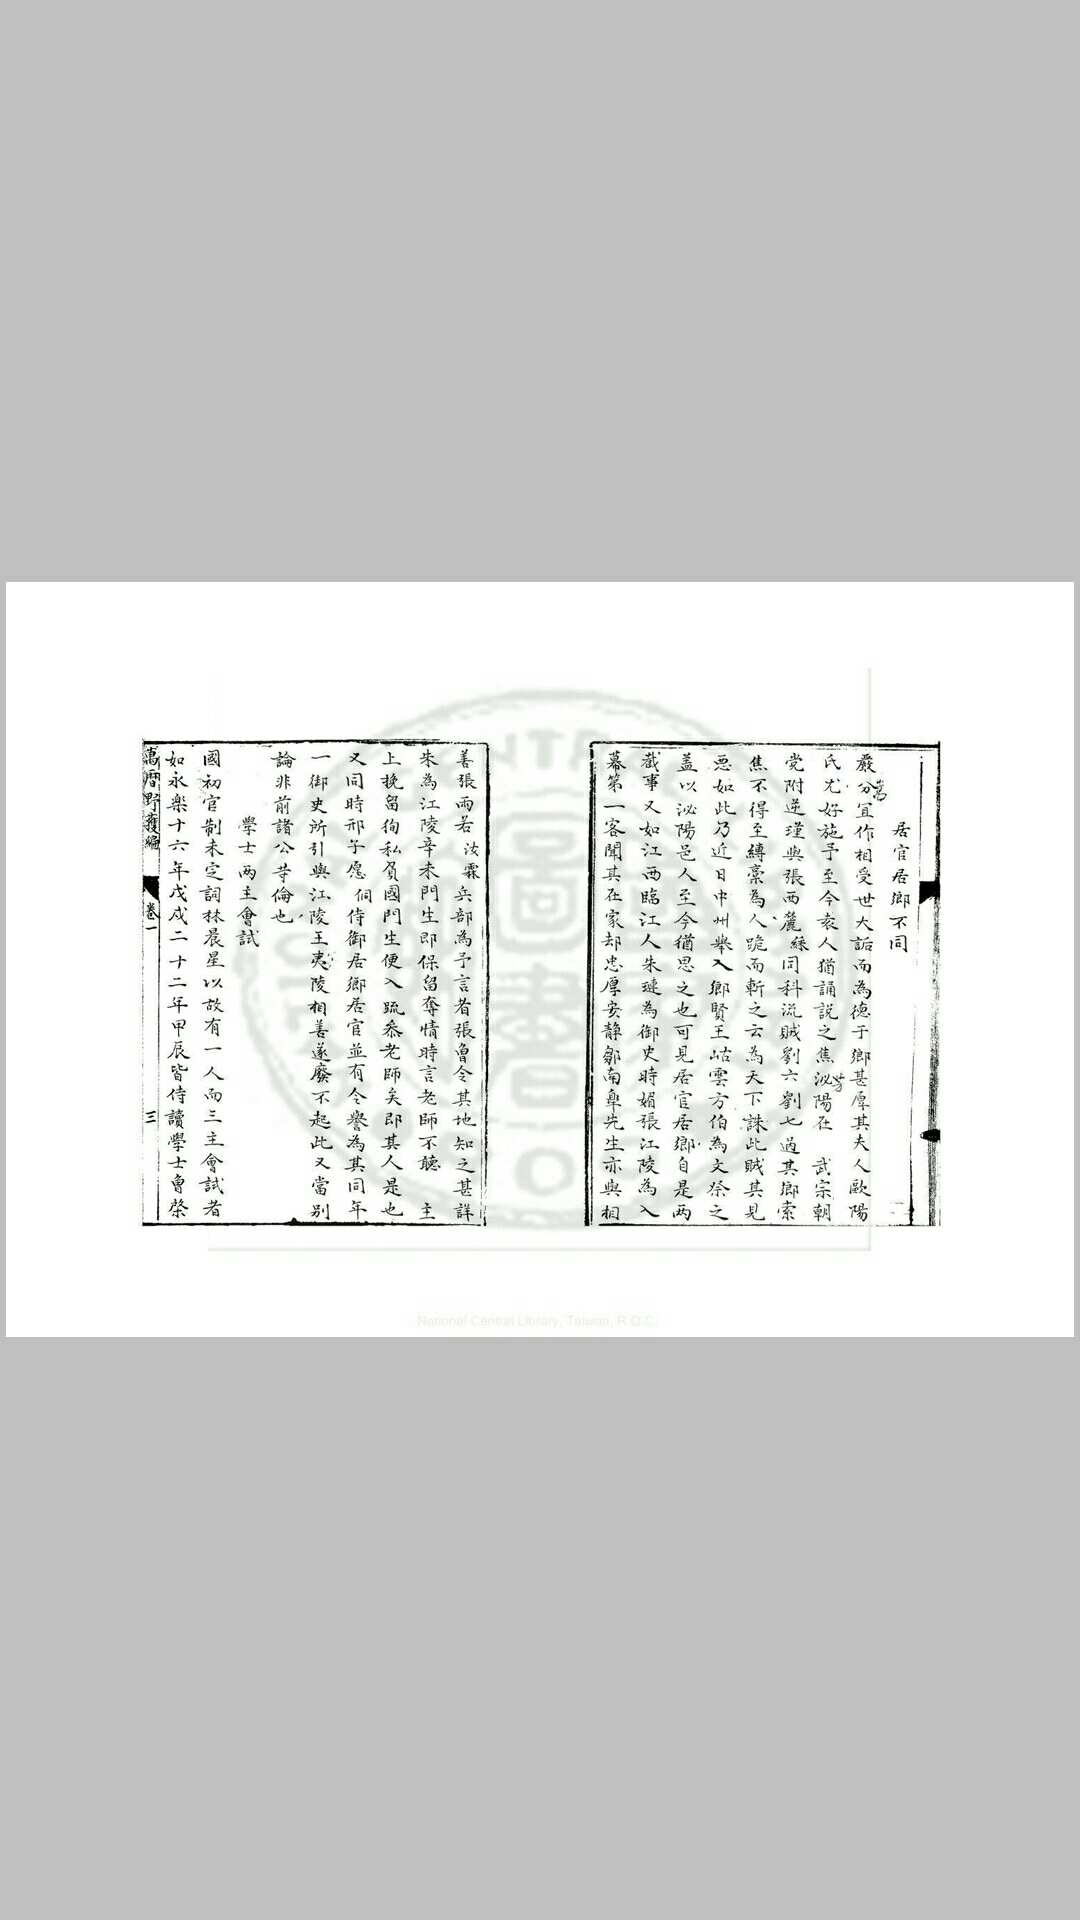 居官居鄉不同
嚴分宜嵩作相受世大詬而為德于鄉甚厚其夫人歐陽
氏尤好施予至今袁人猶誦說之焦泌陽芳在 武宗朝
党附逆瑾與張西麓綵同科流賊劉六劉七過其鄉索
焦不得至縛藁為人跪而斬之云為天下誅此賊其見
惡如此乃近日中州舉入鄉賢王岵雲方伯為文祭之
盖以泌陽邑人至今猶思之也可見居官居鄉自是两
截事又如江西臨江人朱璉為御史時媚張江陵為入
幕第一客聞其在家却忠厚安静鄒南臯先生亦與相
善張雨若汝霖兵部為予言者張魯令其地知之甚詳
朱為江陵辛未門生即保留奪情時言老師不聽 主
上挽留徇私負國門生便入疏叅老師矣即其人是也
又同時邢子愿侗侍御居鄉居官並有令譽為其同年
一御史所引與江陵王夷陵相善遂廢不起此又當别
論非前諸公䓁倫也
學士两主會試
國初官制未定詞林晨星以故有一人而三主會試者
如永樂十六年戊戌二十二年甲辰皆侍讀學士曾棨
萬曆野獲編
卷一
三
National Central Library, Taiwan, R.O.C.